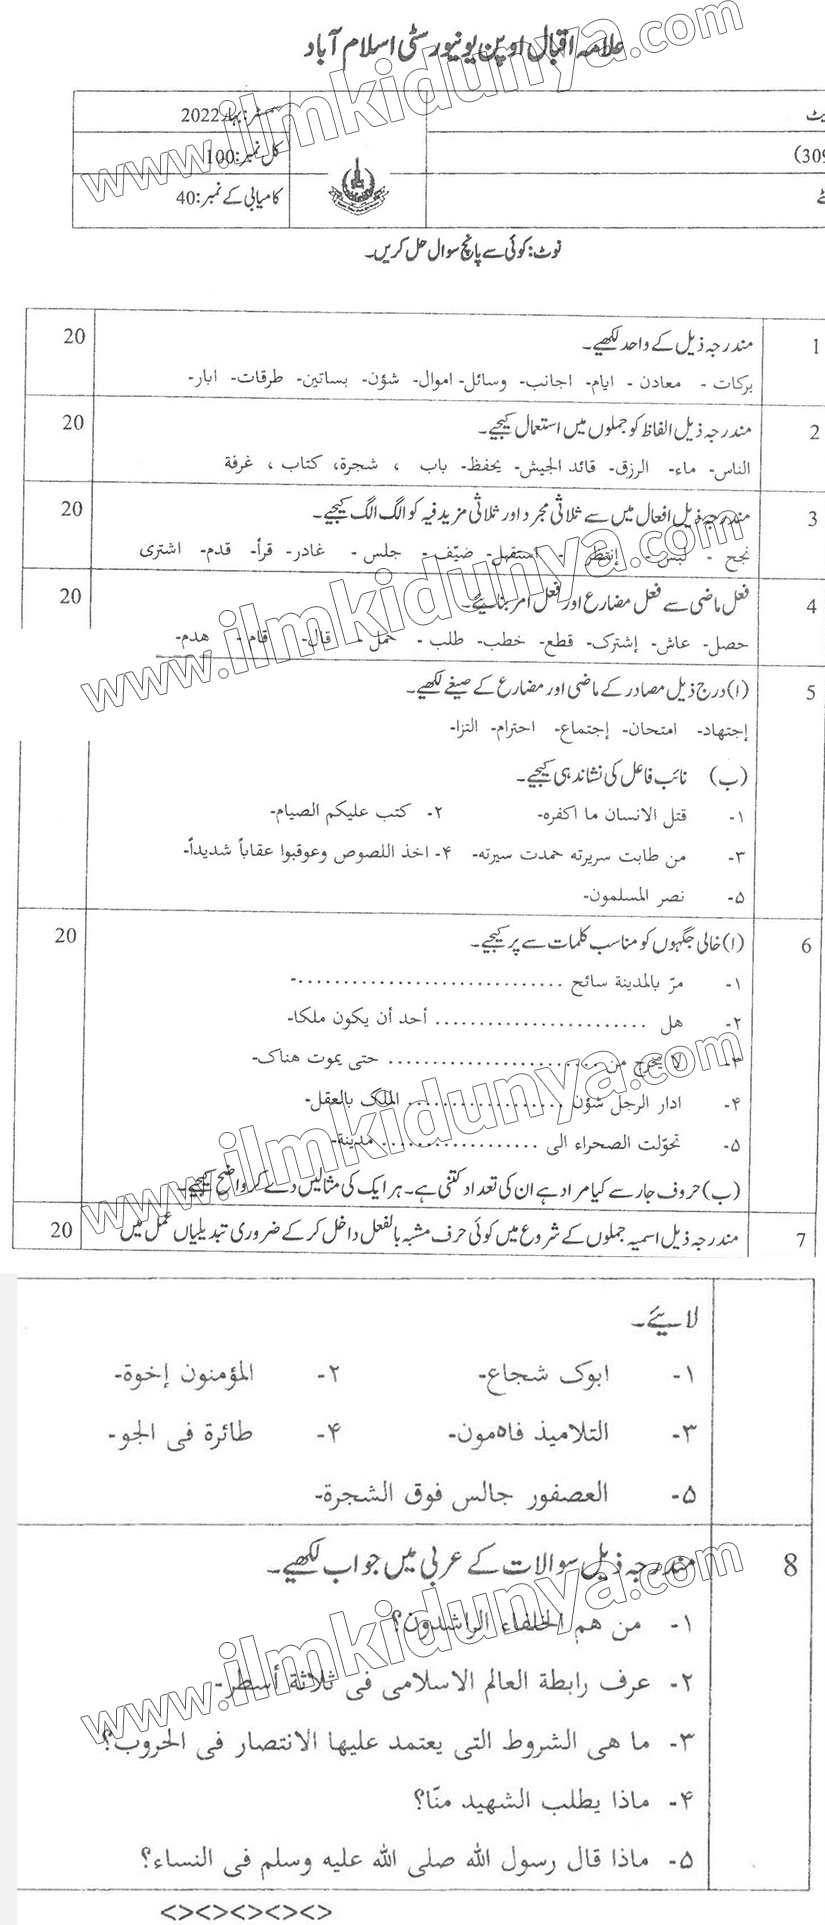 علامہ اقبال اوپن یونیورسٹی اسلام آباد
سمسٹر: بہار 2022
کل نمبر: 100
کامیابی کے نمبر: 40
نوٹ: کوئی سے پانچ سوال حل کریں۔
1 مندرجہ ذیل کے واحد لکھیے۔ 20
برکات - معادن - ایام- اجانب- وسائل- اموال- شؤن- بساتین- طرقات- ابار-
2 مندرجہ ذیل الفاظ کو جملوں میں استعمال کیجیے۔ 20
الناس- ماء- الرزق- قائد الجیش- یحفظ- باب ، شجرة، کتاب ، غرفة
3 مندرجہ ذیل افعال میں سے ثلاثی مجرد اور ثلاثی مزید فیہ کو الگ الگ کیجیے۔ 20
نجح - لبس- إنتظر - استفهل- ضیّف- جلس - غادر- قرأ- قدم- اشتری
4 فعل ماضی سے فعل مضارع اور فعل امر بنائیے۔ 20
حصل- عاش- إشترک- قطع- خطب- طلب - حمل- قال- قام- هدم-
5 (ا) درج ذیل مصادر کے ماضی اور مضارع کے صیغے لکھیے۔
إجتهاد- امتحان- إجتماع- احترام- التزا-
(ب) نائب فاعل کی نشاندہی کیجیے۔
۱- قتل الانسان ما اکفره- ۲- کتب علیکم الصیام-
۳- من طابت سریرته حمدت سیرته- ۴- اخذ اللصوص وعوقبوا عقاباً شدیداً-
۵- نصر المسلمون-
6 (ا) خالی جگہوں کو مناسب کلمات سے پر کیجیے۔ 20
۱- مرّ بالمدینة سائح .............................-
۲- هل ........................ أحد أن یکون ملکا-
۳- لا یخرج من ........................ حتی یموت هناک-
۴- ادار الرجل شؤن .................. الملک بالعقل-
۵- تحوّلت الصحراء الی .................. مدینة-
(ب) حروف جار سے کیا مراد ہے ان کی تعداد کتنی ہے۔ ہر ایک کی مثالیں دے کر واضح کیجیے۔
7 مندرجہ ذیل اسمیہ جملوں کے شروع میں کوئی حرف مشبہ بالفعل داخل کر کے ضروری تبدیلیاں عمل میں 20
لائیے۔
۱- ابوک شجاع- ۲- المؤمنون إخوة-
۳- التلامیذ فاهمون- ۴- طائرة فی الجو-
۵- العصفور جالس فوق الشجرة-
8 مندرجہ ذیل سوالات کے عربی میں جواب لکھیے۔
۱- من هم الخلفاء الراشدون؟
۲- عرف رابطة العالم الاسلامی فی ثلاثة أسطر-
۳- ما هی الشروط التی یعتمد علیها الانتصار فی الحروب؟
۴- ماذا یطلب الشهید منّا؟
۵- ماذا قال رسول الله صلی الله علیه وسلم فی النساء؟
<><><><><>
www.ilmkidunya.com
www.ilmkidunya.com
www.ilmkidunya.com
www.ilmkidunya.com